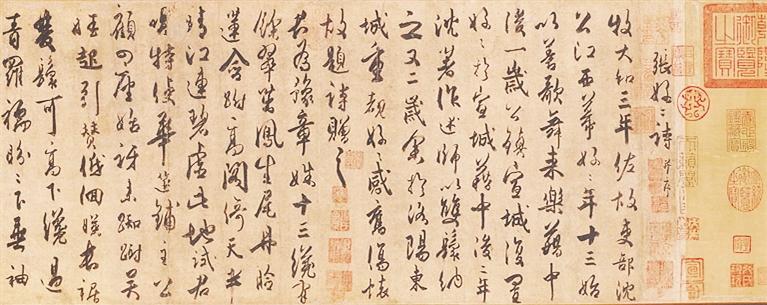 張好〻詩并序
牧大和三年佐故吏部沈
公江西幕好〻年十三始
以善歌舞來樂籍中
後一歲公鎮宣城復置
好〻於宣城籍中後二年
沈著作述師以雙鬟納
之又二歲余於洛陽東
城重覩好〻感舊傷懷
故題詩贈之
君為豫章姝十三纔有
餘翠茁鳳生尾丹臉
蓮含跗高閣倚天半
晴江連碧虛此地試君
唱特使華筵鋪主公
顧四座始訝來踟躕吳
娃起引贊低佪暎長裾
雙鬟可高下纔過
青羅襦盼〻下垂袖